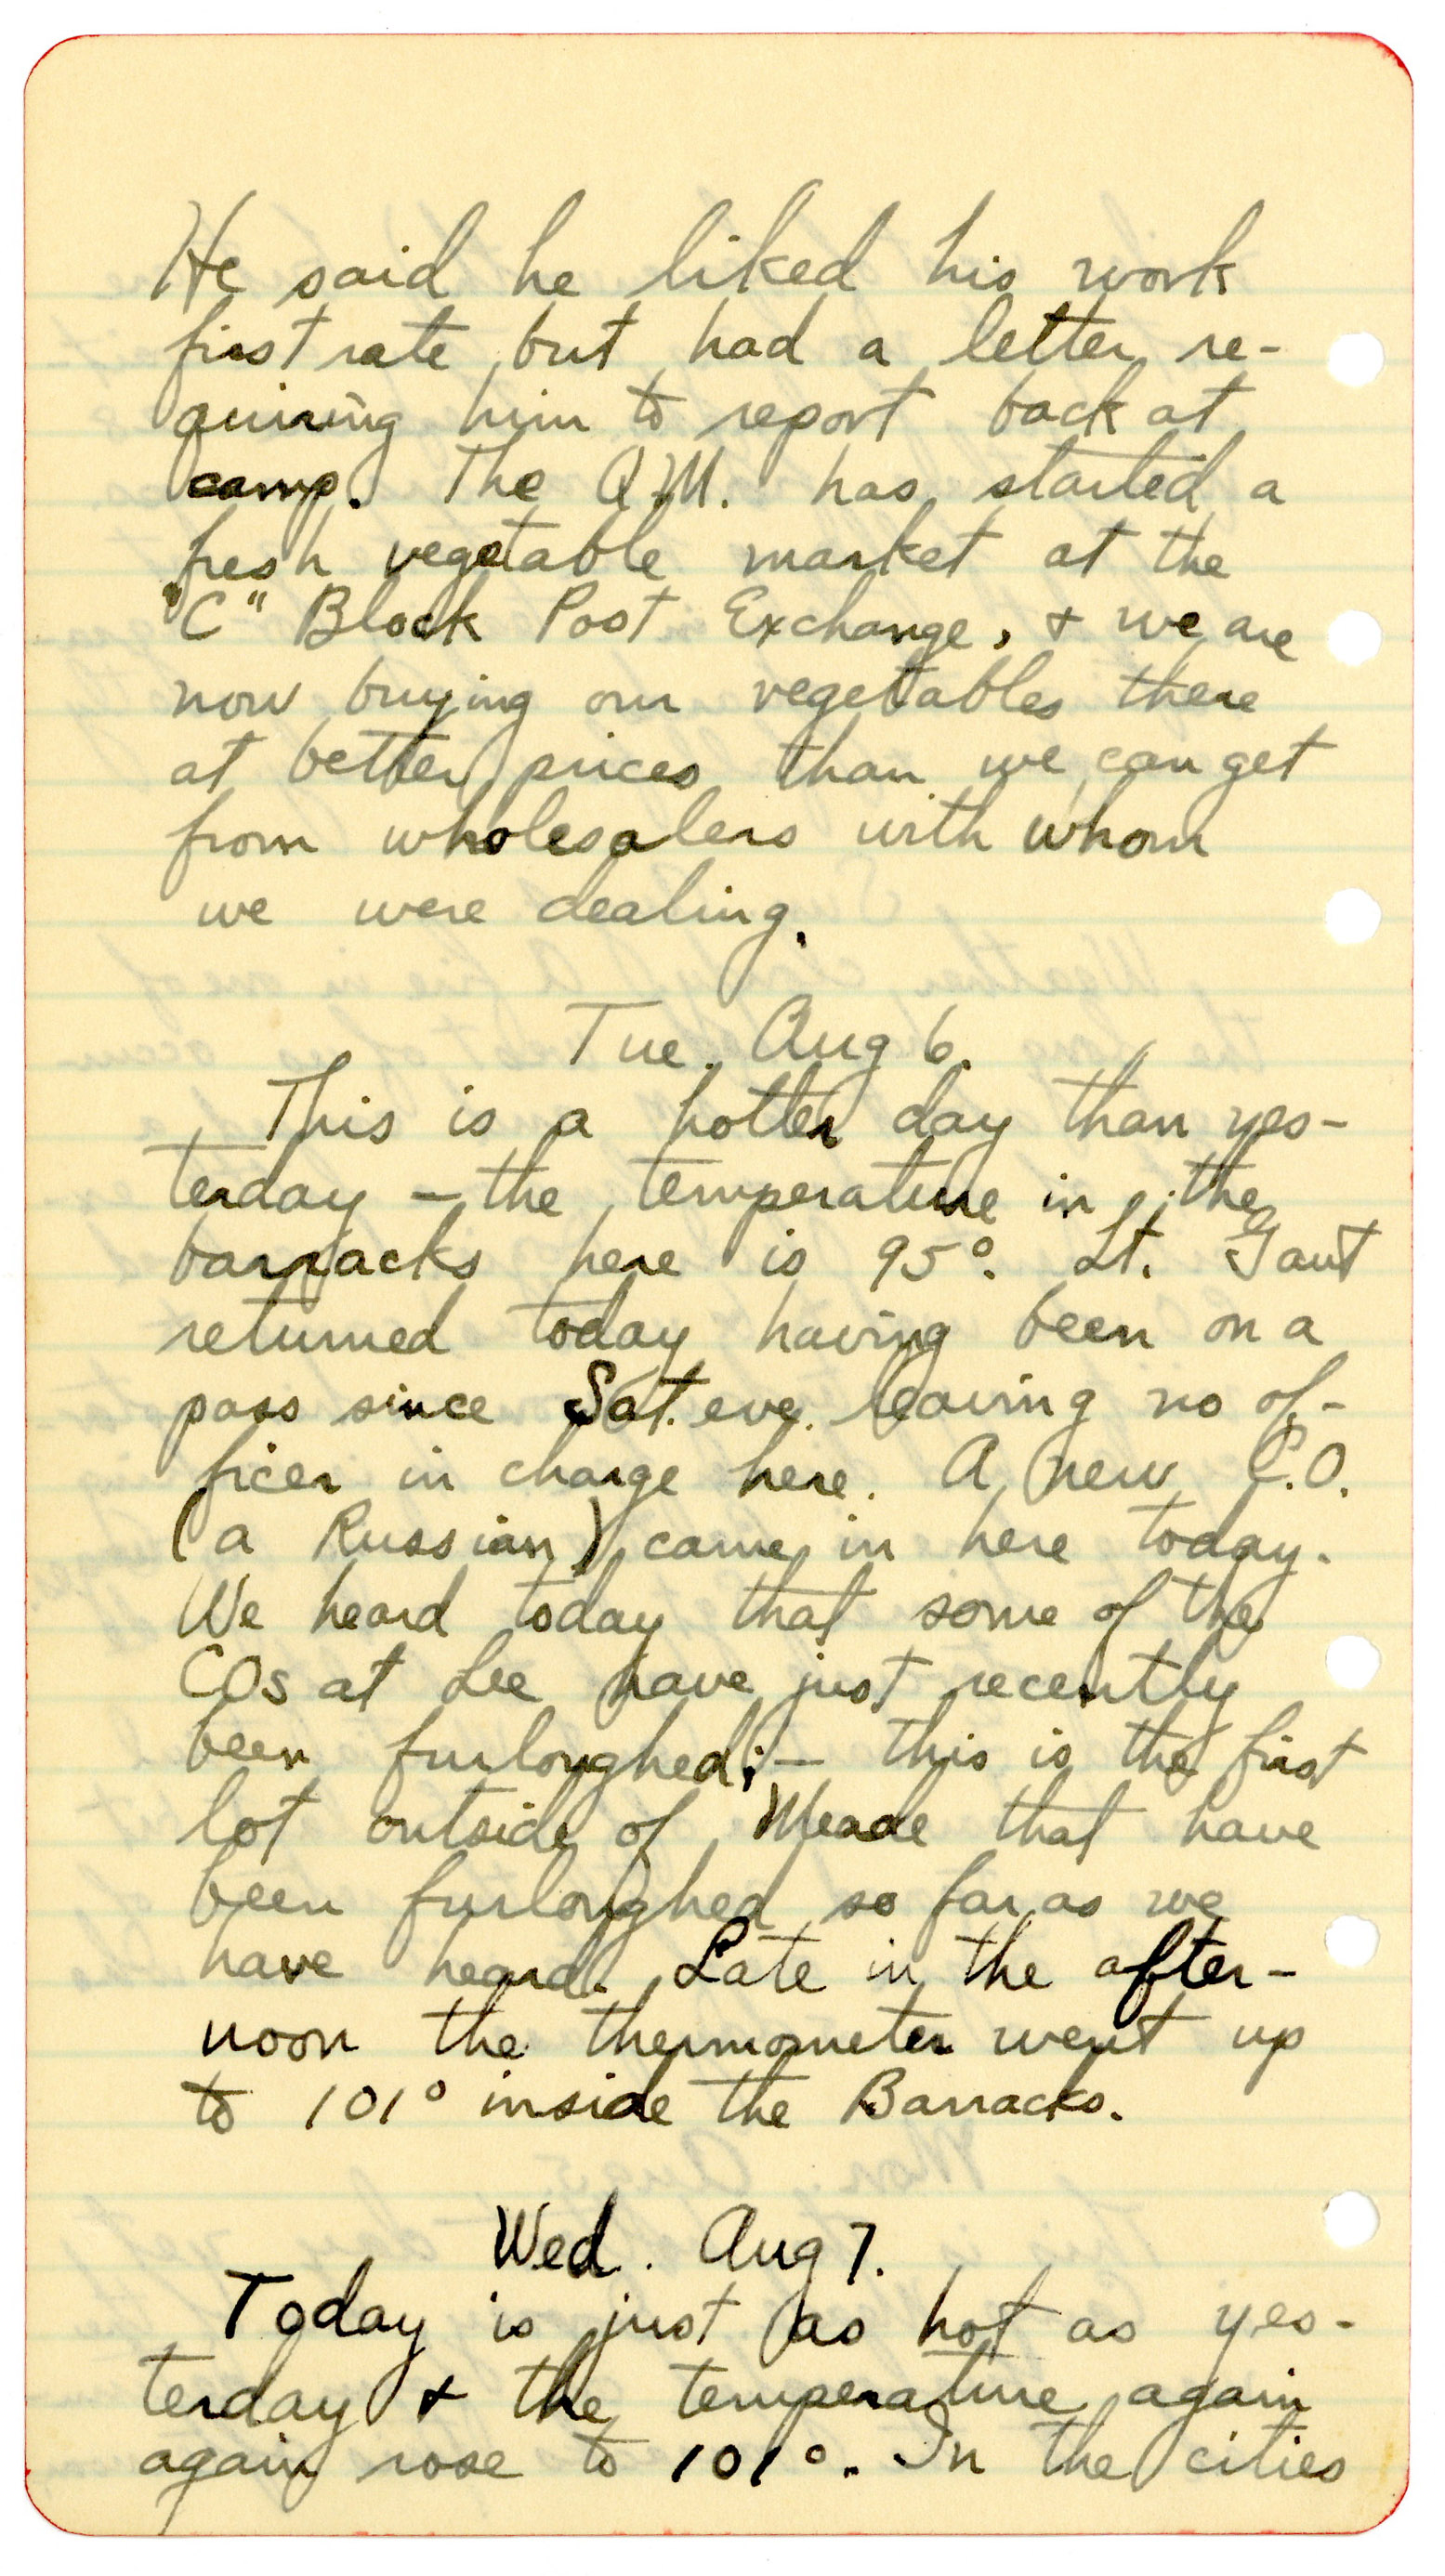 He said he liked his work
first rate but had a letter re-
quiring him to report back at
camp. The Q.M. has started a
fresh vegetable market at the
"C" Block Post Exchange, + we are
now buying our vegetables there
at better prices than we can get
from wholesalers with whom
we were dealing.
Tue. Aug 6.
This is a hotter day than yes-
terday - the temperature in the
barracks here is 95°. Lt. Gaut
returned today having been on a
pass since Sat. eve. leaving no of-
ficer in charge here. A new C.O.
(a Russian) came in here today.
We heard today that some of the
COs at Lee have just recently
been furloughed; - this is the first
lot outside of Meade that have
been furloughed so far as we
have heard. Late in the after-
noon the thermometer went up
to 101° inside the Barracks.
Wed. Aug 7.
Today is just as hot as yes-
terday + the temperature again
again rose to 101°. In the cities